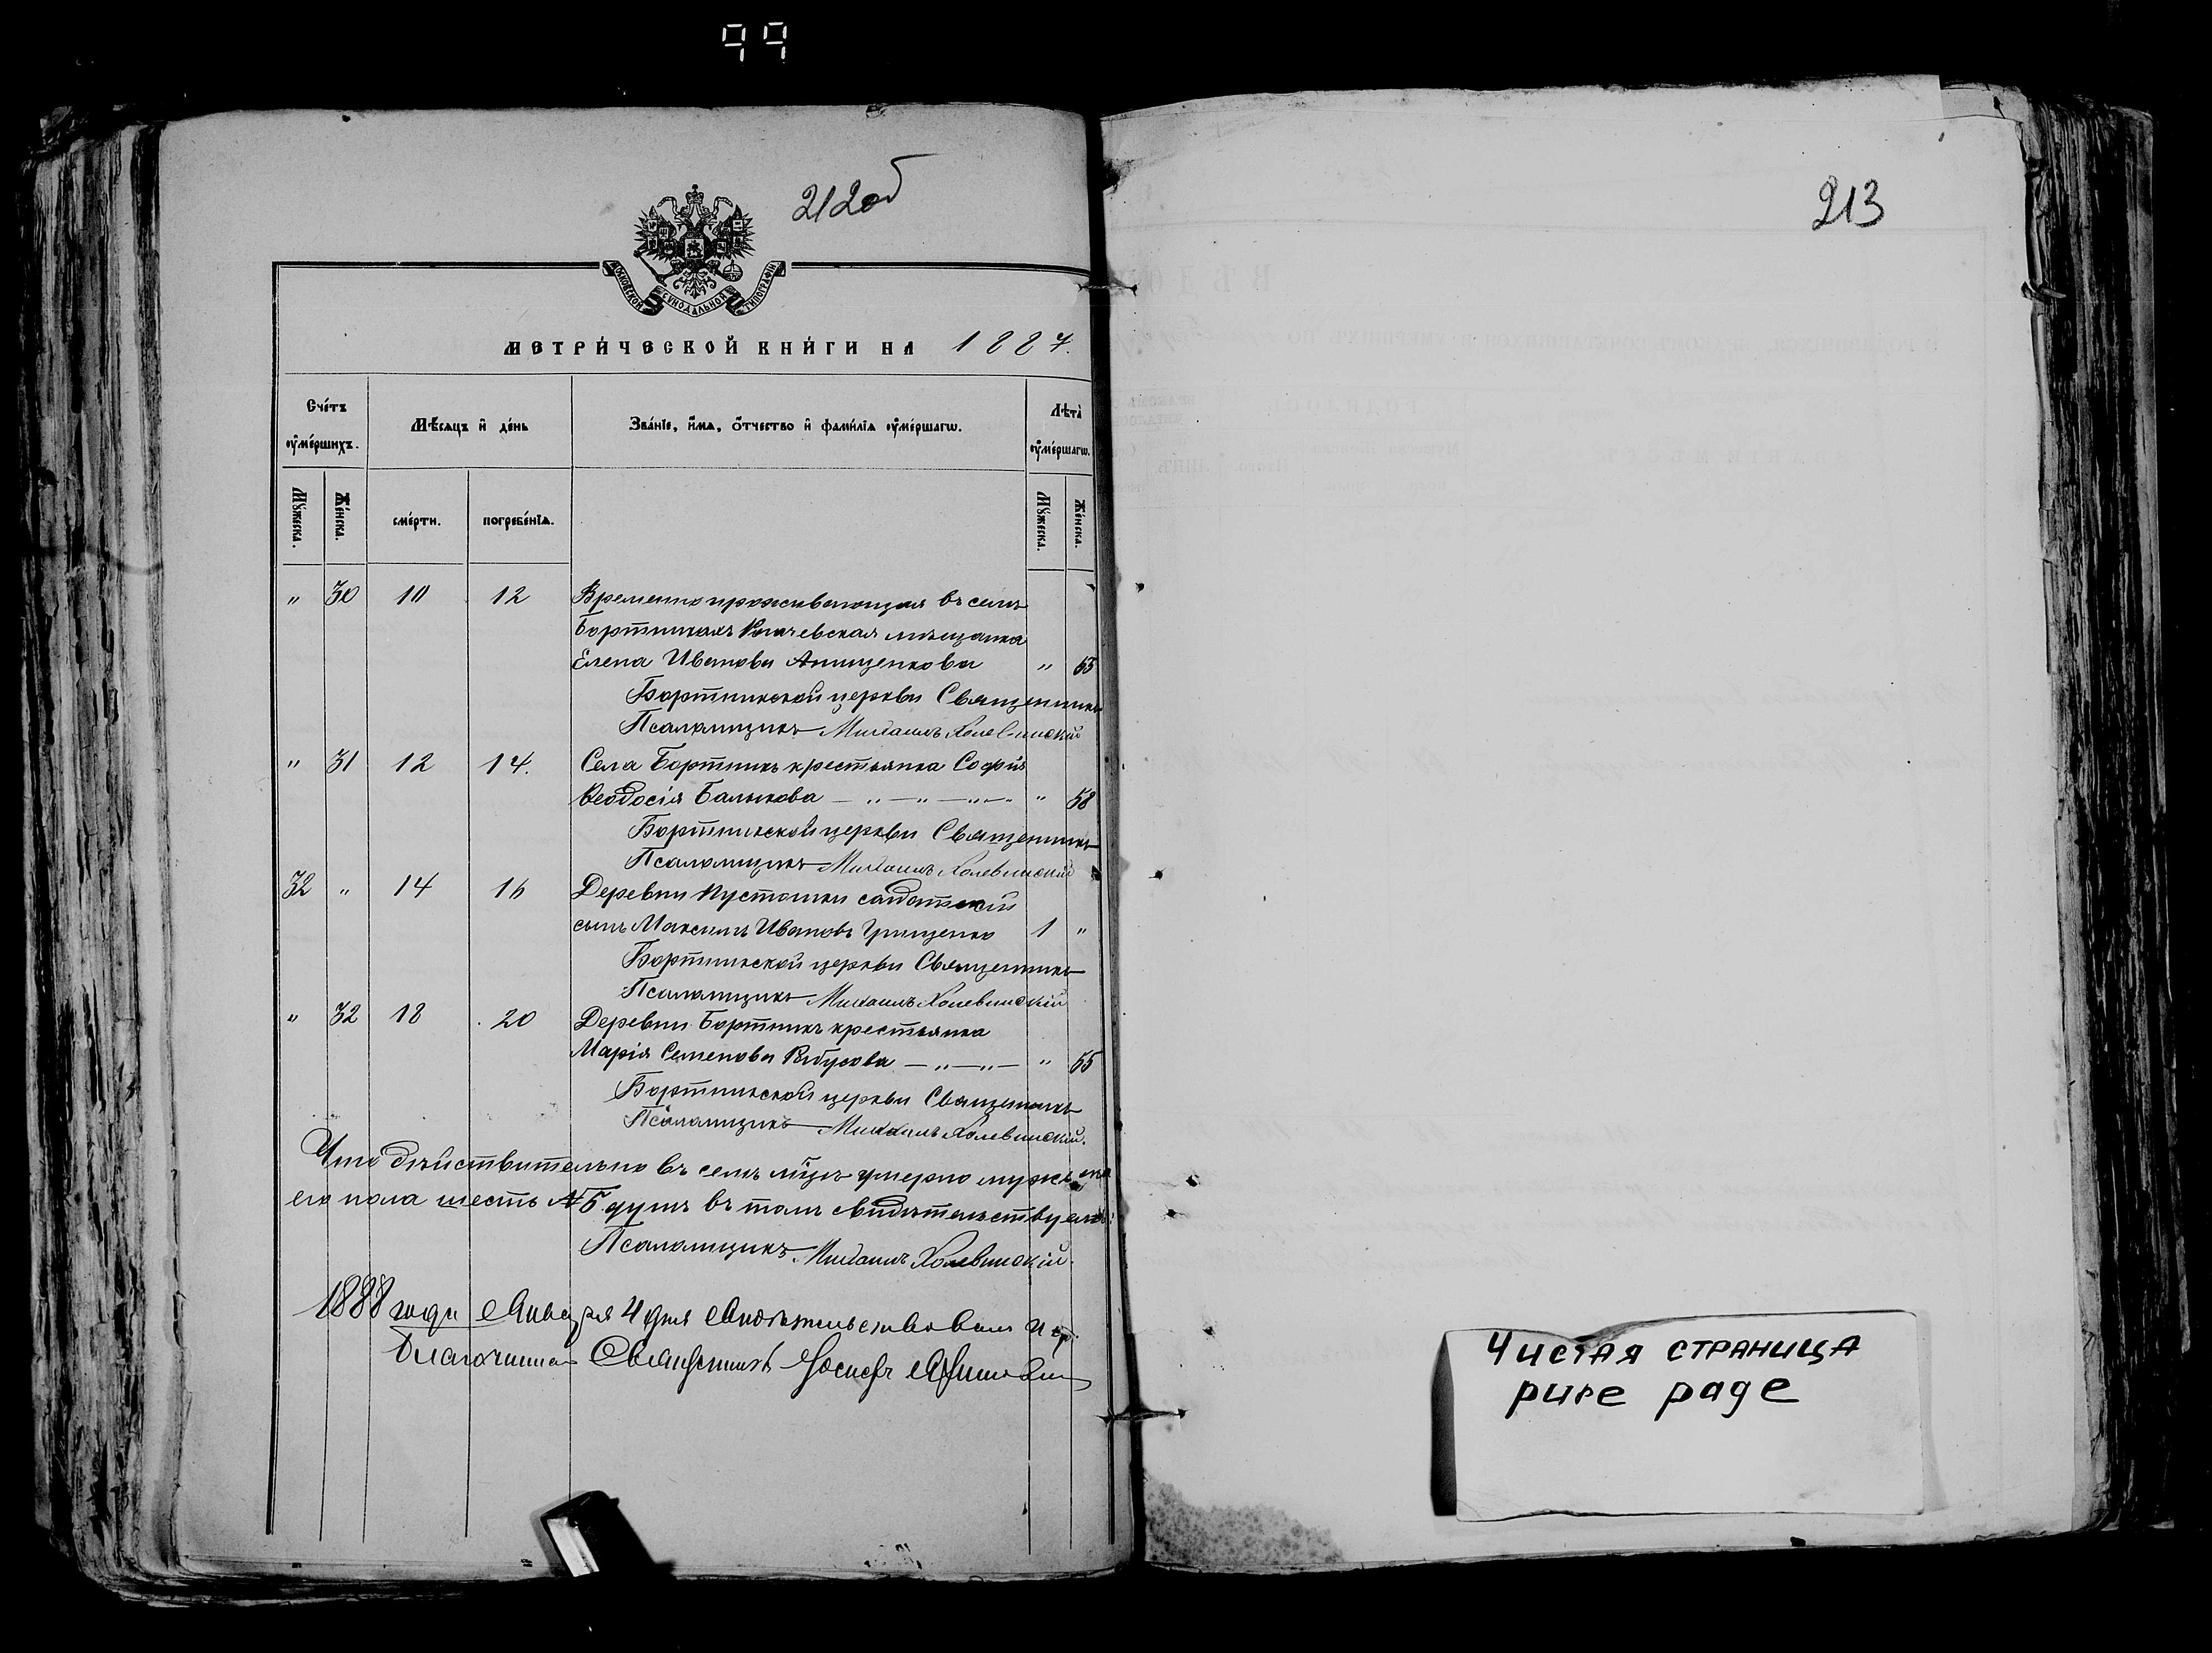 99
212об
213
МОСКОВСКОЙ СѴНОДАЛЬНОЙ ТИПОГРАФІИ
МЕТРИ́ЧЕСКОЙ КНИ́ГИ НА 1887.
Сче́тъ ᲂу҆ме́ршихъ.
Мѣ́сяцъ и҆ де́нь
Зва́нїе, и҆́мѧ, ѻ҆́тчество и҆ фами́лїѧ ᲂу҆ме́ршагѡ.
Лѣта̀ ᲂу҆ме́ршагѡ.
Мꙋ́жеска.
Же́нска.
сме́рти.
погребе́нїѧ.
Мꙋ́жеска.
Же́нска.
" 30 10 12 Временно проживающая въ селѣ
Бортникахъ мѣщанка
Елена Иванова Анищенкова "
Бортникской церкви Священникъ
Псаломщикъ Михаилъ Холевинскій
" 31 12 14. Села Бортникъ крестьянка Софія
Ѳеодосія Балыкова " 58
Бортникской церкви Священникъ
Псаломщикъ Михаилъ Холевинскій
32 " 14 16 Деревни Пустошки солдатскій
сынъ Максимъ Ивановъ Грищенко 1 "
Бортникской церкви Священникъ
Псаломщикъ Михаилъ Холевинскій
" 32 18 20 Деревни Бортникъ крестьянка
Марія Семенова " 55
Бортникской церкви Священникъ
Псаломщикъ Михаилъ Холевинскій.
Что дѣйствительно въ семъ умерло
его пола шесть душъ въ томъ свидѣтельствуемъ:
Псаломщикъ Михаилъ Холевинскій.
1888 года Января 4 дня свидѣтельствовалъ
Священникъ Іосифъ
Чистая страница
pure page